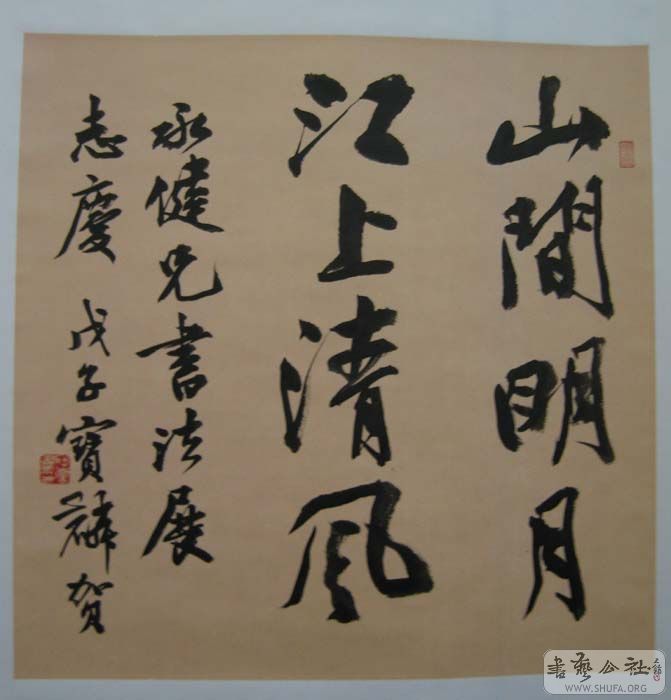 山間明月
江上清風
永健兄書法展
志慶 戊子寶麟贺
書藝公社
WWW.SHUFA.ORG